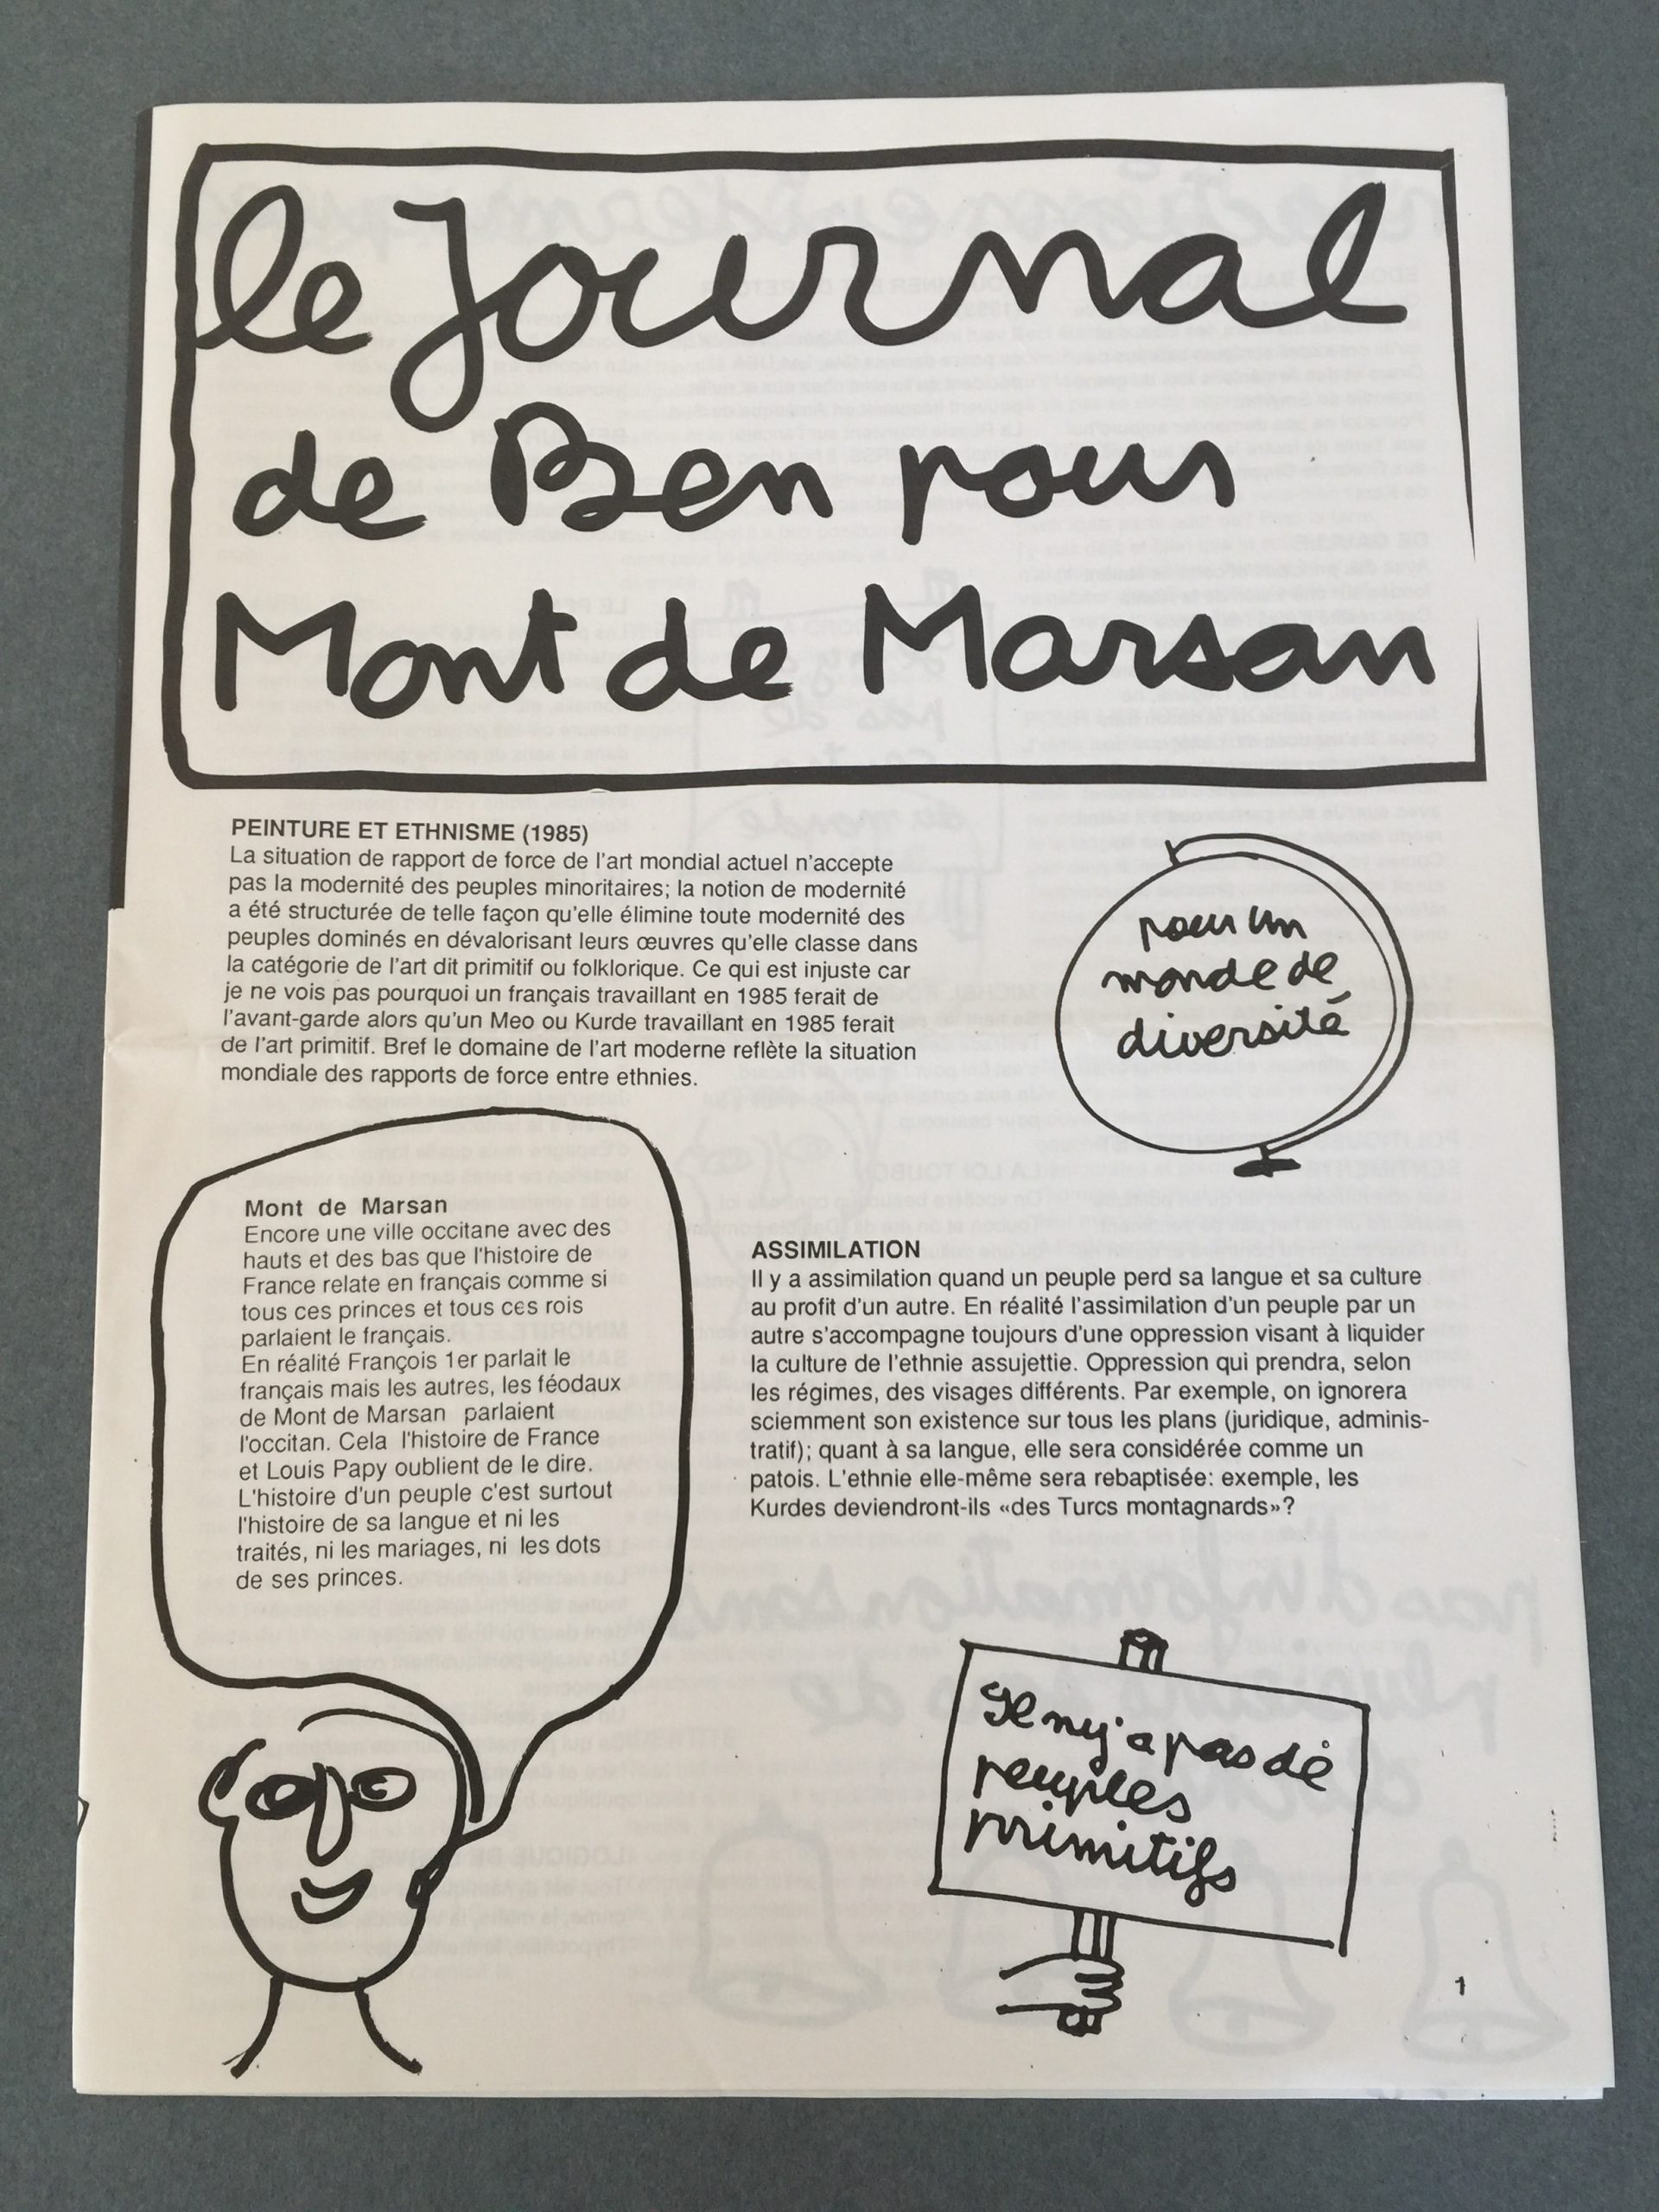 le Journal
de Ben pour
Mont de Marsan
PEINTURE ET ETHNISME (1985)
La situation de rapport de force de l'art mondial actuel n'accepte
pas la modernité des peuples minoritaires; la notion de modernité
a été structurée de telle façon qu'elle élimine toute modernité des
peuples dominés en dévalorisant leurs œuvres qu'elle classe dans
la catégorie de l'art dit primitif ou folklorique. Ce qui est injuste car
je ne vois pas pourquoi un français travaillant en 1985 ferait de
l'avant-garde alors qu'un Meo ou Kurde travaillant en 1985 ferait
de l'art primitif. Bref le domaine de l'art moderne reflète la situation
mondiale des rapports de force entre ethnies.
pour un
monde de
diversité
Mont de Marsan
Encore une ville occitane avec des
hauts et des bas que l'histoire de
France relate en français comme si
tous ces princes et tous ces rois
parlaient le français.
En réalité François 1er parlait le
français mais les autres, les féodaux
de Mont de Marsan parlaient
l'occitan. Cela l'histoire de France
et Louis Papy oublient de le dire.
L'histoire d'un peuple c'est surtout
l'histoire de sa langue et ni les
traités, ni les mariages, ni les dots
de ses princes.
ASSIMILATION
Il y a assimilation quand un peuple perd sa langue et sa culture
au profit d'un autre. En réalité l'assimilation d'un peuple par un
autre s'accompagne toujours d'une oppression visant à liquider
la culture de l'ethnie assujettie. Oppression qui prendra, selon
les régimes, des visages différents. Par exemple, on ignorera
sciemment son existence sur tous les plans (juridique, adminis-
tratif); quant à sa langue, elle sera considérée comme un
patois. L'ethnie elle-même sera rebaptisée: exemple, les
Kurdes deviendront-ils «des Turcs montagnards»?
Il ny'a pas de
peuples
primitifs
1